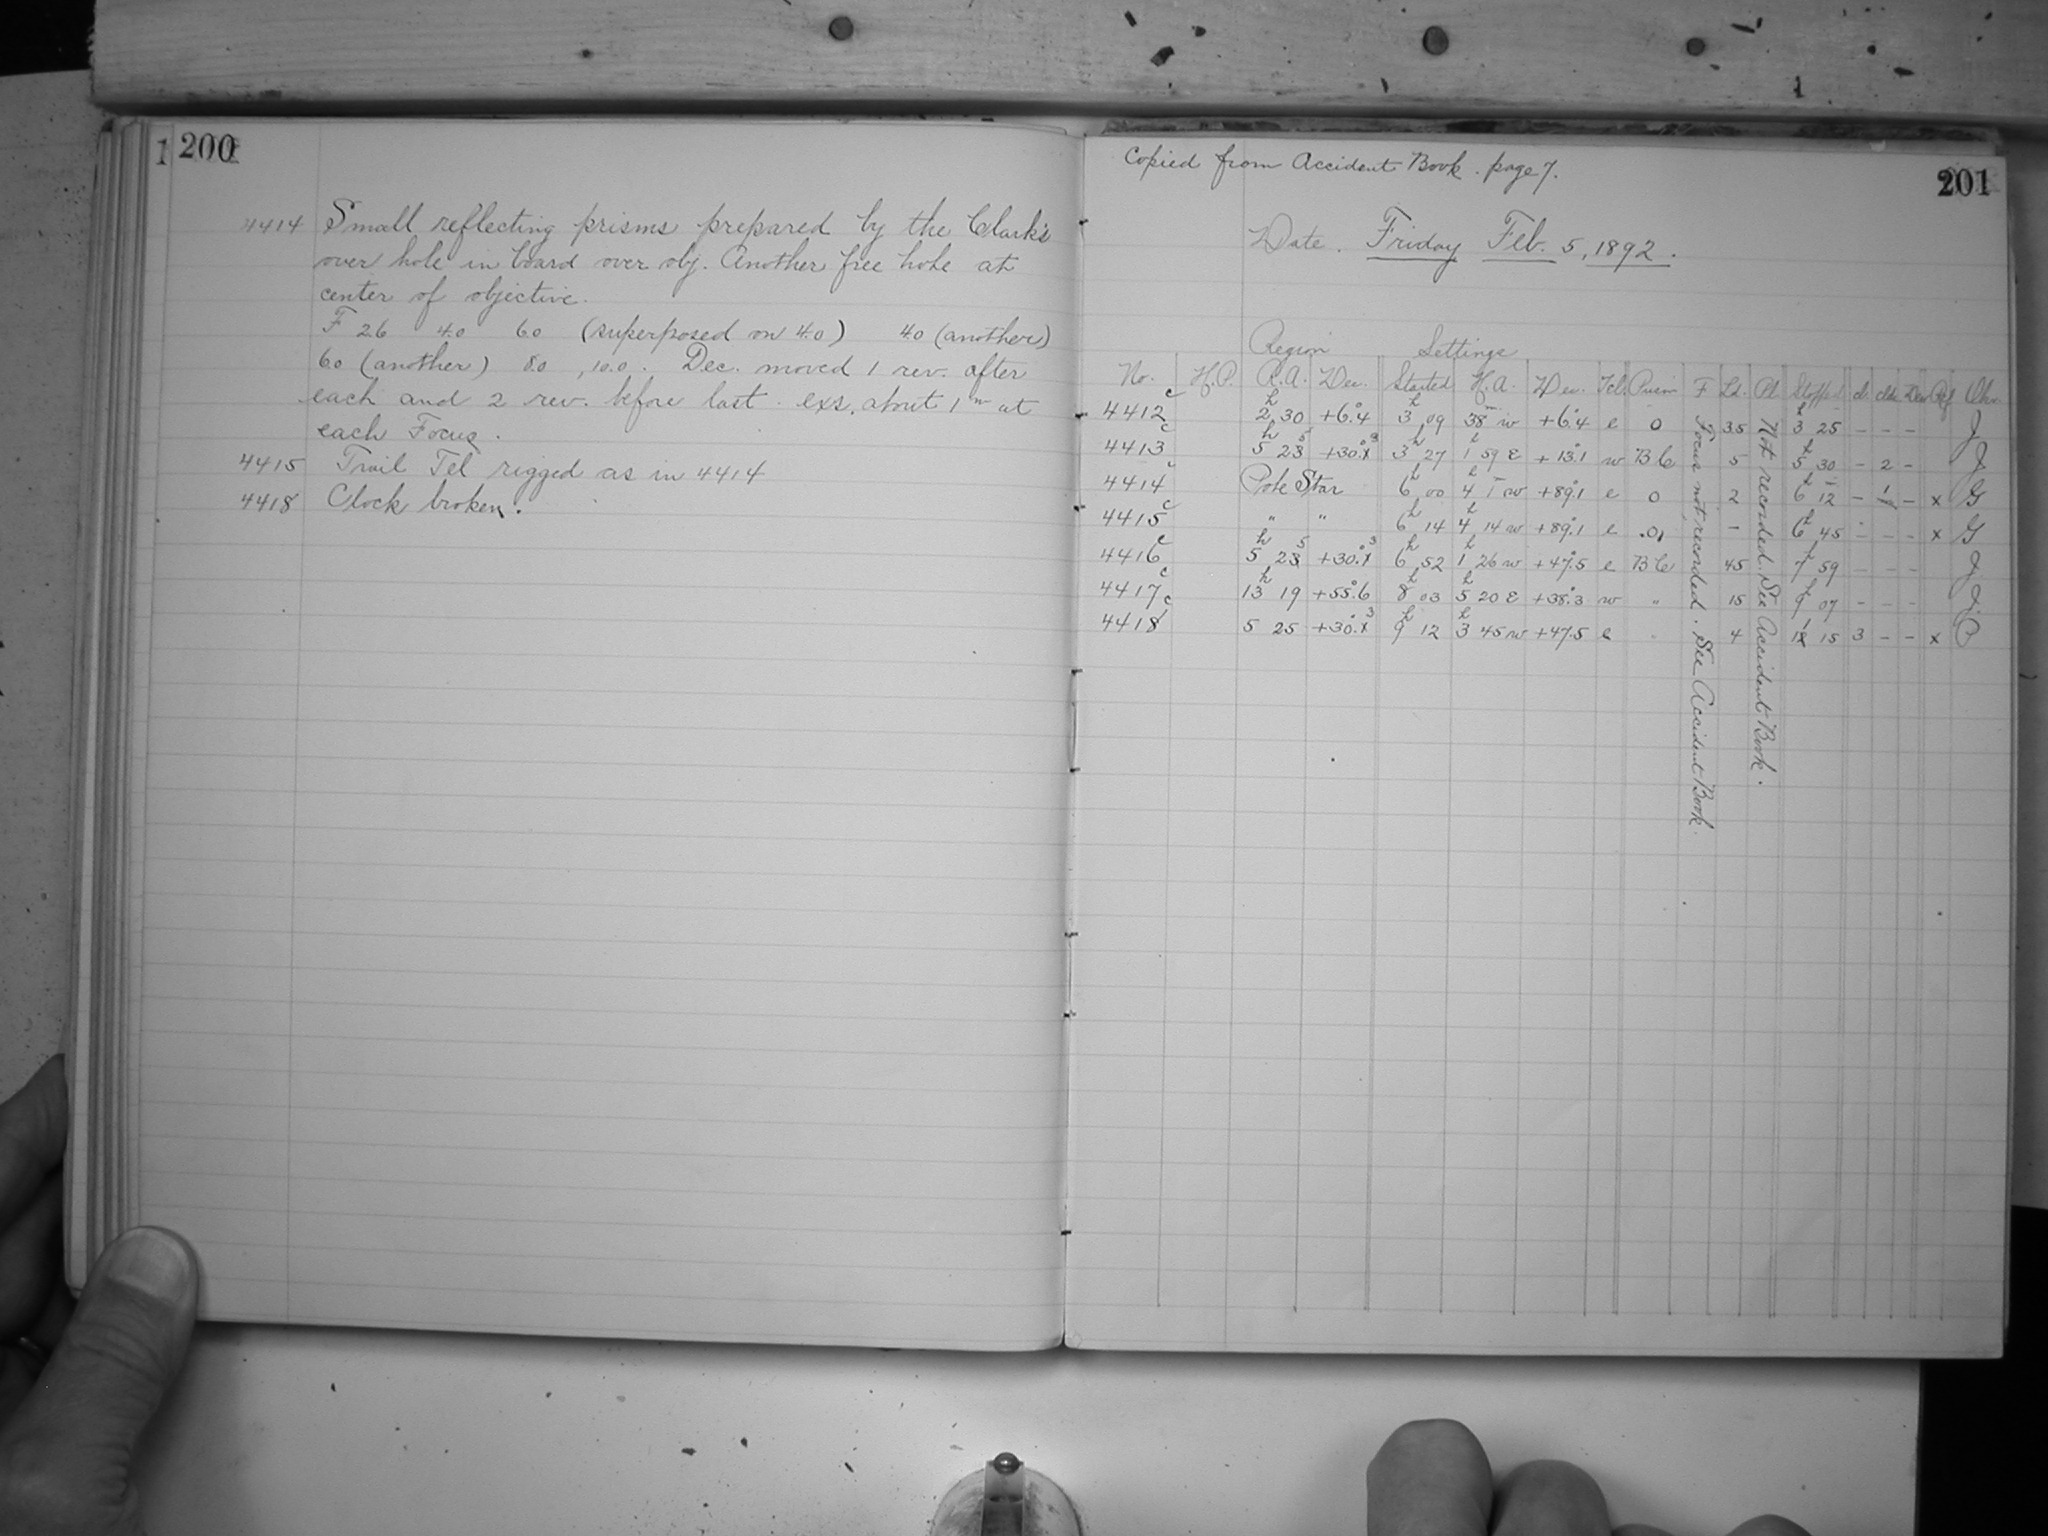 200
4414 Small reflecting prisms prepared by the Clark's
over hole in board over obj. Another free hole at
center of objective.
F 26 4.0 6.0 (superposed on 4.0) 4.0 (another)
6.0 (another) 8.0 , 10.0 . Dec. moved 1 rev. after
each and 2 rev. before last. exs. about 1m at
each Focus.
4415 Trail Tel rigged as in 4414
4418 Clock broken.
Copied from Accident Book. page 7.
201
Date. Friday Feb. 5, 1892.
Region Settings
No. H.P. R.A. Dec. Started H.A. Dec. Tel. Prism F Ld. Pl. Stopped cl. Dew Ref Obs.
4412 c 2h 30 +6°.4 3h 09 38m w +6°.4 e 0 35 3h 25 - - - J
4413 c 5h 23 5 +30°. 3 3h 27 1h 59 E +13°.1 w B C 5 5h 30 - 2 - J
4414 c Pole Star 6h 00 4h 1m w +89°.1 e 0 2 6h 12 - 1 - x G
4415 c " " 6h 14 4h 14 w +89°.1 e .0, 1 6h 45 - - - x G
4416 c 5h 23 5 +30°. 3 6h 52 1h 26 w +47°.5 e B C 45 7h 59 - - - J
4417 c 13h 19 +55°.6 8h 03 5h 20 E +38°.3 w " 15 9h 07 - - - J
4418 c 5 25 +30°. 3 9h 12 3h 45 w +47.5 e 4 15 3 - - x P
Focus not recorded. See Accident Book.
Not recorded. See Accident Book.